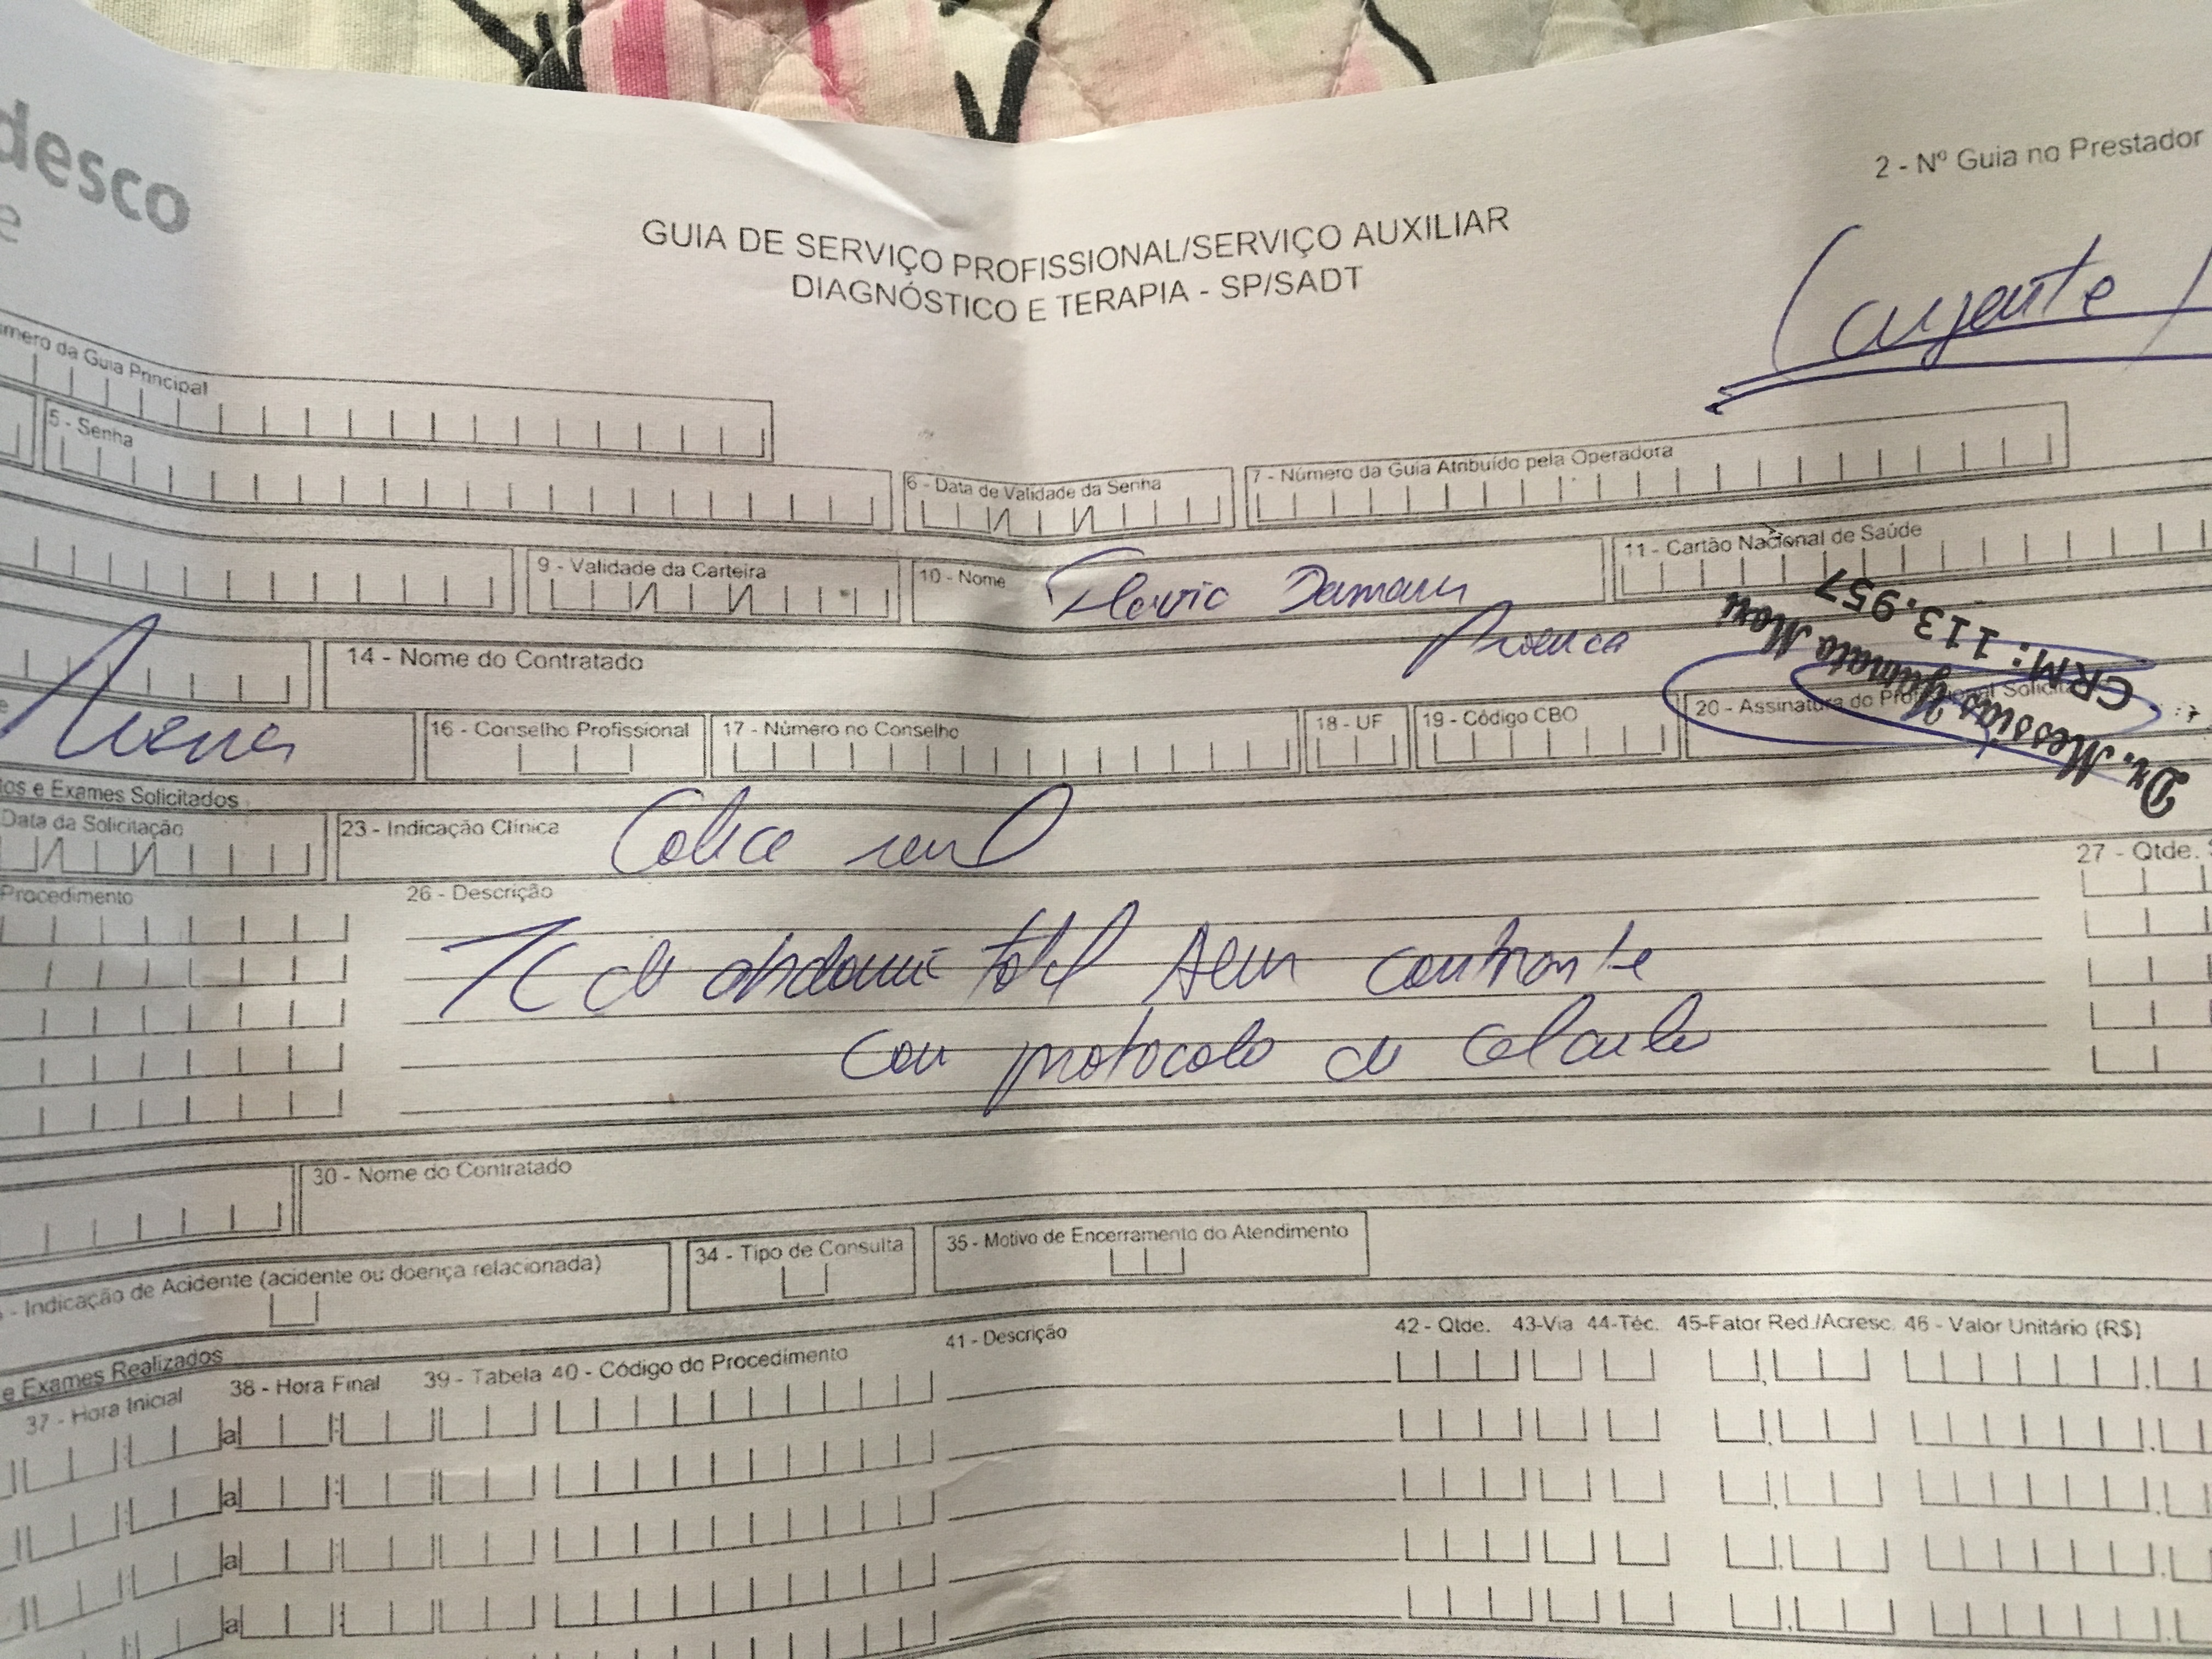 desco
GUIA DE SERVIÇO PROFISSIONAL/SERVIÇO AUXILIAR
DIAGNÓSTICO E TERAPIA - SP/SADT
2 - Nº Guia no Prestador
Urgente
mero da Guia Principal
5 - Senha
6 - Data de Validade da Senha
7 - Número da Guia Atribuído pela Operadora
9 - Validade da Carteira
10 - Nome
11 - Cartão Nacional de Saúde
14 - Nome do Contratado
16 - Conselho Profissional
17 - Número no Conselho
18 - UF
19 - Código CBO
20 - Assinatura do
CRM: 113.957
Dr.
os e Exames Solicitados
Data da Solicitação
23 - Indicação Clínica
Colica renal
Procedimento
26 - Descrição
27 - Qtde.
TC de abdome total sem contraste
com protocolo de calculo
30 - Nome do Contratado
- Indicação de Acidente (acidente ou doença relacionada)
34 - Tipo de Consulta
35 - Motivo de Encerramento do Atendimento
e Exames Realizados
37 - Hora Inicial
38 - Hora Final
39 - Tabela
40 - Código do Procedimento
41 - Descrição
42 - Qtde.
43-Via
44-Téc.
45-Fator Red./Acresc.
46 - Valor Unitário (R$)
a
a
a
a